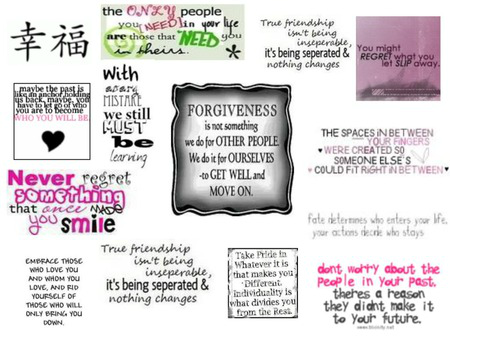 幸福
the ONLY people
you [NEED] in your life
are those that NEED you
in theirs.
True friendship
isn't being
inseperable,
it's being seperated &
nothing changes
You might
REGRET what you
let SLIP away.
maybe the past is
like an anchor holding
us back, maybe, you
have to let go of who
you are to become
WHO YOU WILL BE.
With
every
MISTAKE
we still
MUST
be
learning
FORGIVENESS
is not something
we do for OTHER PEOPLE.
We do it for OURSELVES
-to GET WELL and
MOVE ON.
THE SPACES IN BETWEEN
YOUR FINGERS
WERE CREATED SO
SOMEONE ELSE'S
COULD FIT RIGHT IN BETWEEN
Never regret
something
that once MADE
you smile
Fate determines who enters your life,
your actions decide who stays
EMBRACE THOSE
WHO LOVE YOU
AND WHOM YOU
LOVE, AND RID
YOURSELF OF
THOSE WHO WILL
ONLY BRING YOU
DOWN.
True friendship
isn't being
inseperable,
it's being seperated &
nothing changes
Take Pride in
Whatever it is
that makes you
Different
individuality is
what divides you
from the Rest.
dont worry about the
people in your past,
theres a reason
they didnt make it
to your future.